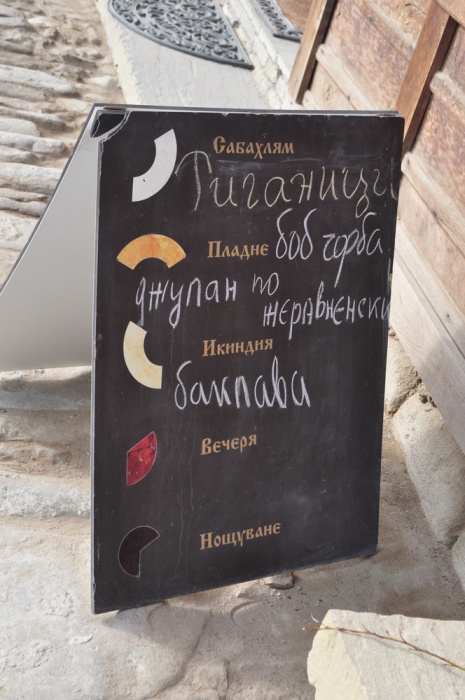 Сабахлям
Тиганици
Пладне боб чорба
джулан по
жеравненски
Икиндия
баклава
Вечеря
Нощуване